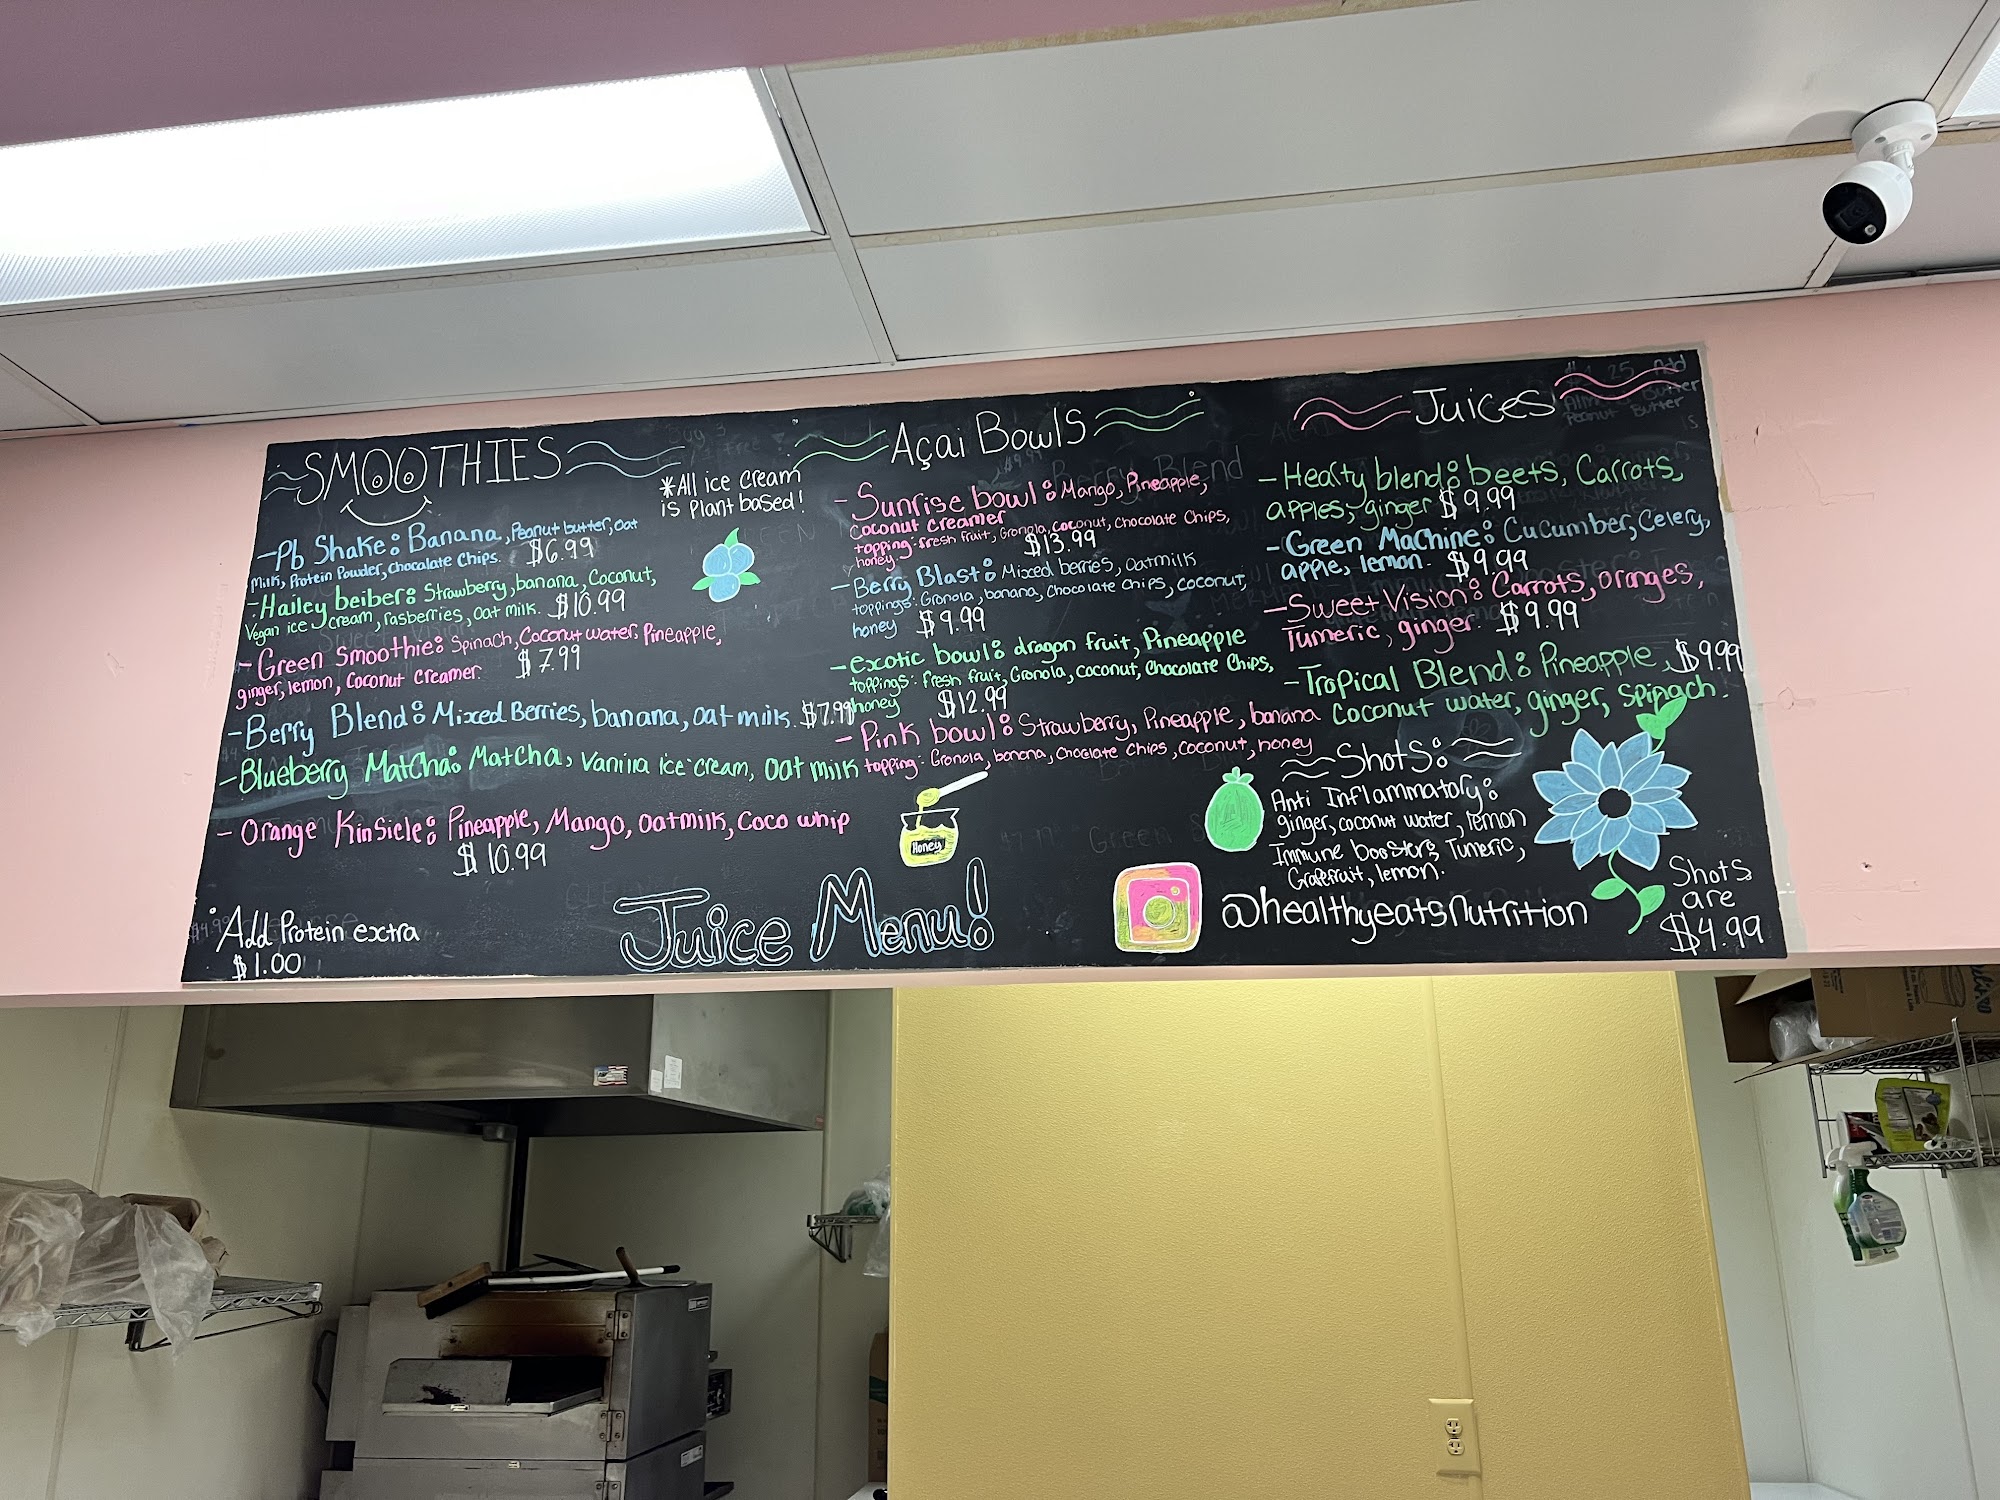 SMOOTHIES
*All ice cream
is plant based!
-Pb Shake: Banana, Peanut butter, oat
milk, Protein Powder, chocolate Chips. $6.99
-Hailey beiber: Strawberry, banana, Coconut,
Vegan ice cream, rasberries, oat milk. $10.99
-Green Smoothie: Spinach, Coconut water, Pineapple,
ginger, lemon, Coconut Creamer. $7.99
-Berry Blend: Mixed Berries, banana, oat milk. $7.99
-Blueberry Matcha: Matcha, Vanilla ice cream, oat milk
- Orange Kinsicle: Pineapple, Mango, oatmilk, Coco whip
$10.99
Add Protein extra
$1.00
Açai Bowls
- Sunrise bowl: Mango, Pineapple,
coconut creamer
topping: fresh fruit, Granola, coconut, chocolate Chips,
honey $13.99
-Berry Blast: Mixed berries, oatmilk
toppings: Granola, banana, Chocolate chips, coconut,
honey $9.99
-excotic bowl: dragon fruit, Pineapple
toppings: fresh fruit, Granola, coconut, Chacolate Chips,
honey $12.99
- Pink bowl: Strawberry, Pineapple, banana
topping: Granola, banana, Choclate Chips, coconut, honey
Honey
Juice Menu!
Juices
- Healty blend: beets, Carrots,
apples, ginger $9.99
-Green Machine: Cucumber, Celery,
apple, lemon. $9.99
-Sweet Vision: Carrots, oranges,
Tumeric, ginger. $9.99
-Tropical Blend: Pineapple, $9.99
Coconut water, ginger, spinach.
Shots:
Anti Inflammatory:
ginger, coconut water, lemon
Immune booster: Tumeric,
Grapefruit, lemon.
@healthyeatsnutrition
Shots
are
$4.99